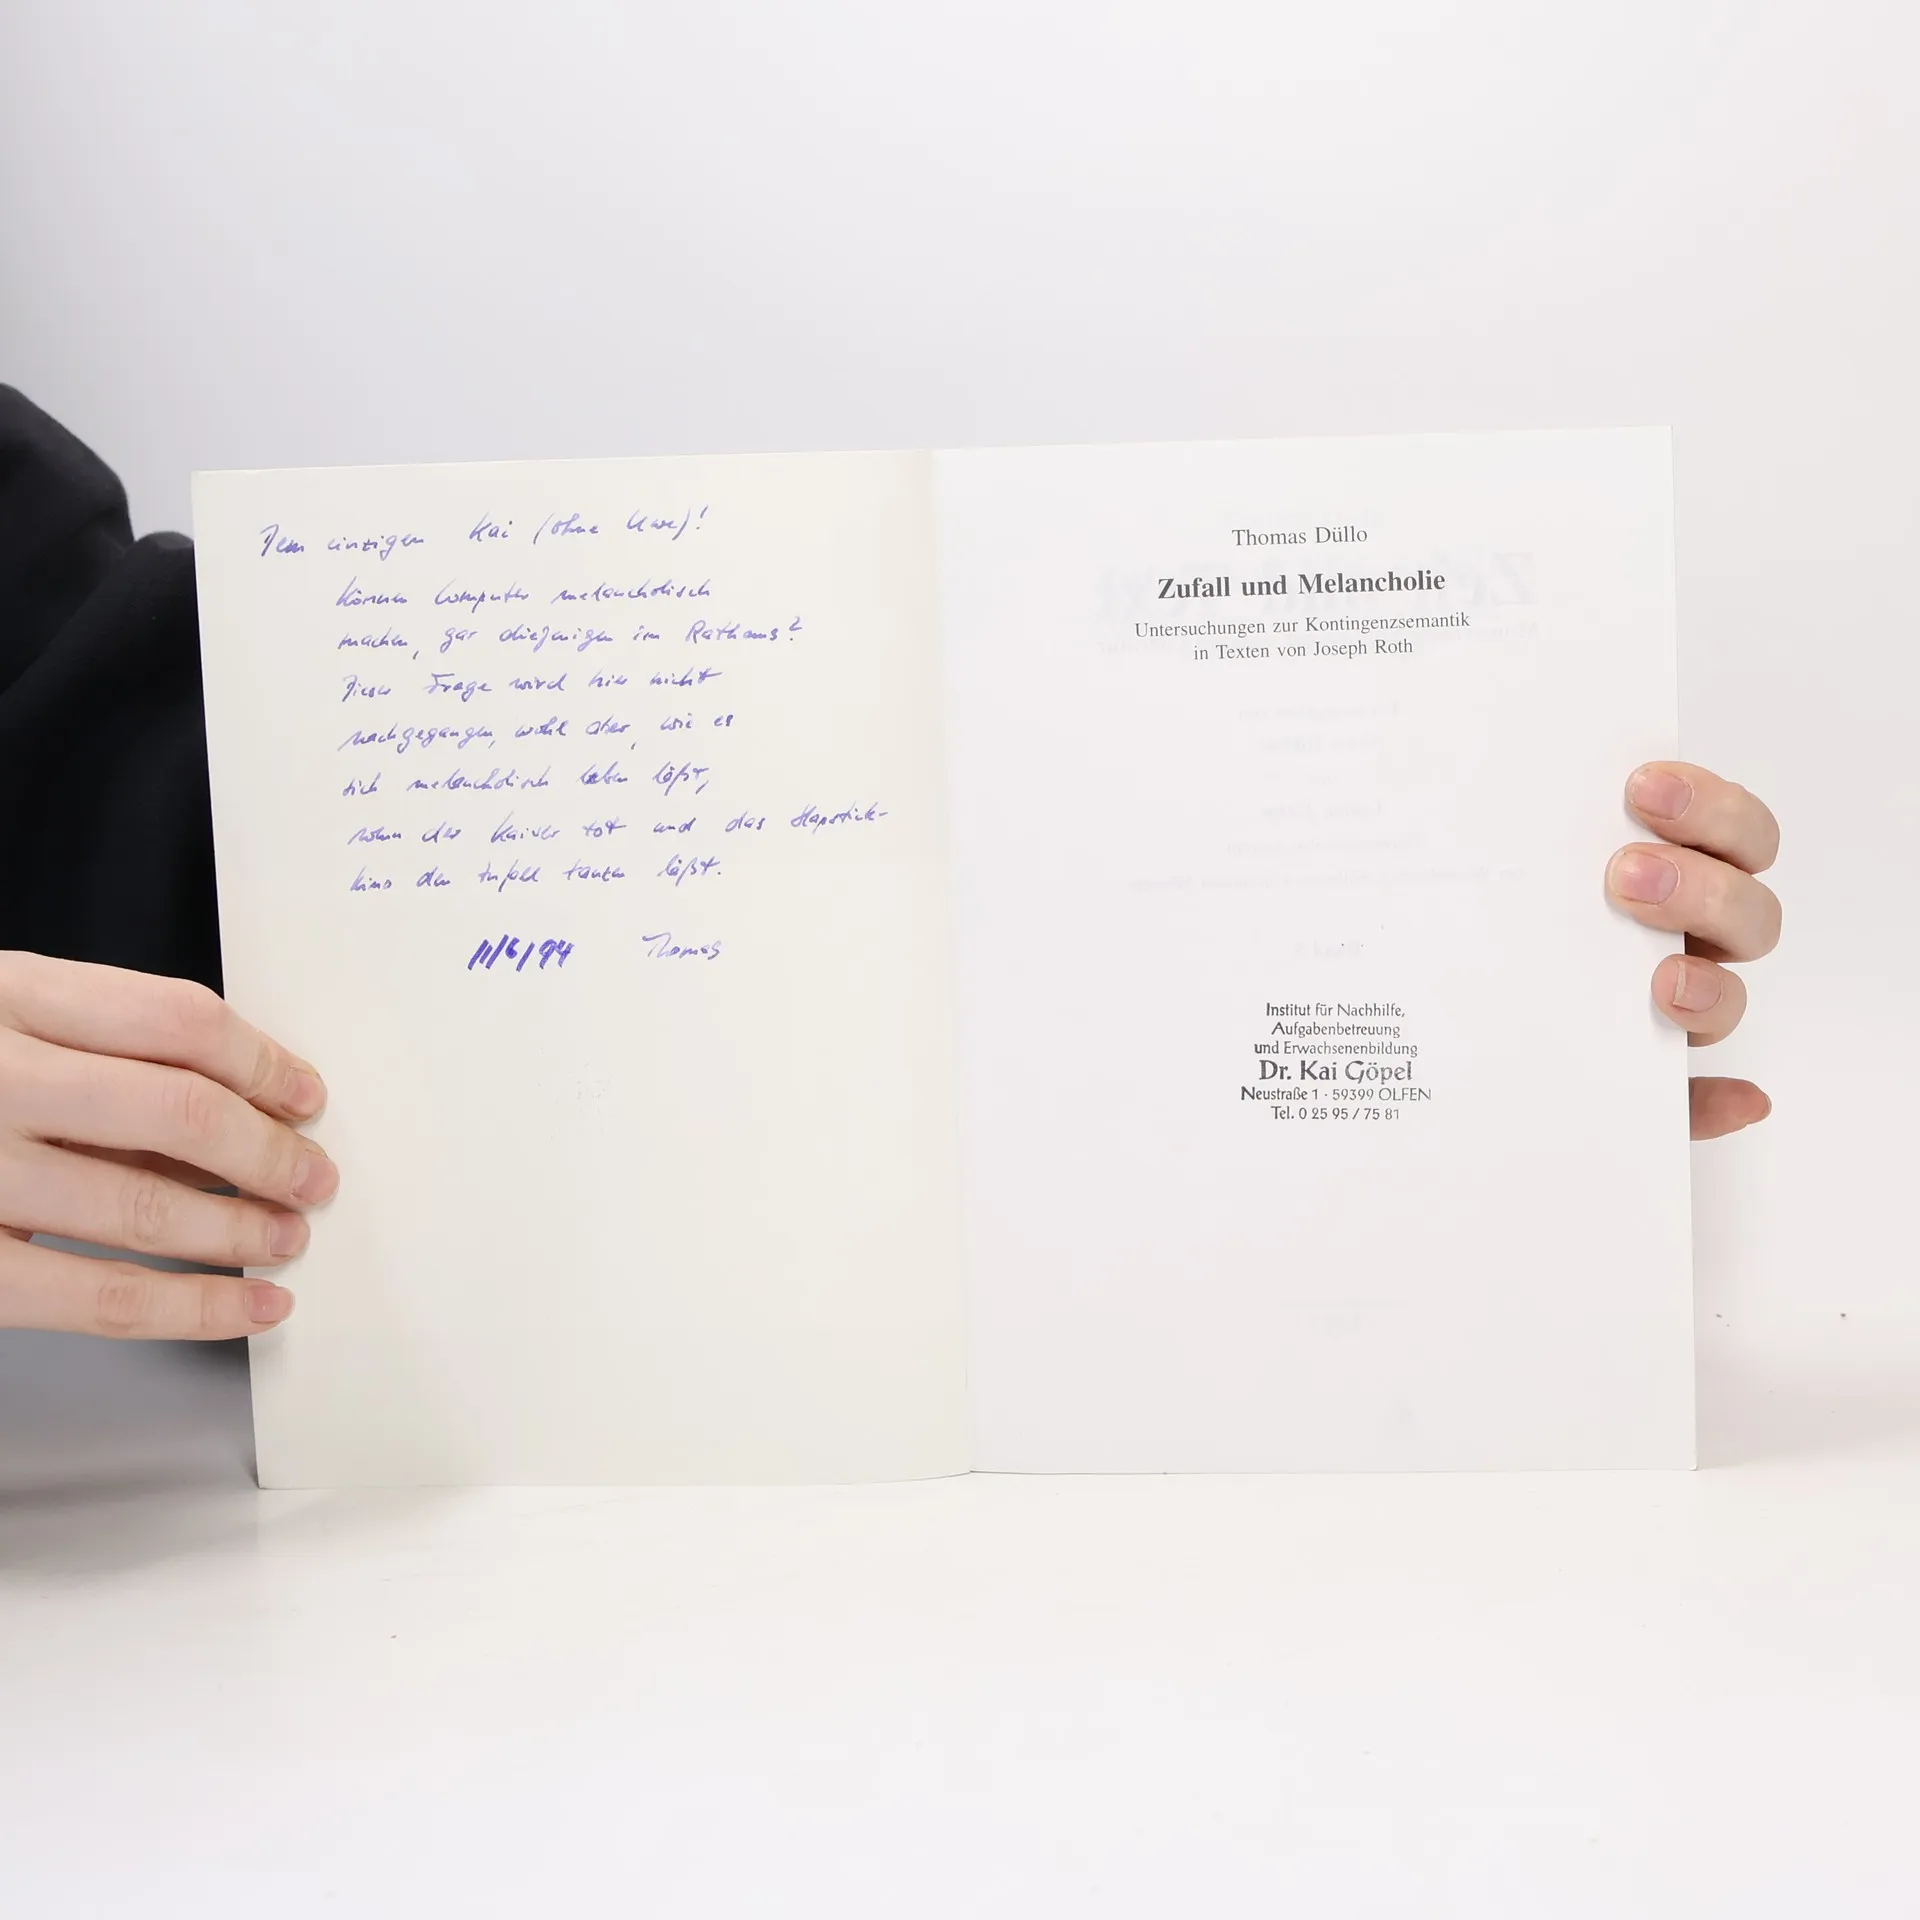 Dem einzigen Kai (ohne Uwe)!
Können Computer melancholisch
machen, gar diejenigen im Rathaus?
Dieser Frage wird hier nicht
nachgegangen, wohl aber, wie es
sich melancholisch leben läßt,
wenn der Kaiser tot und das Slapstick-
kino den Zufall tanzen läßt.
11/6/94 Thomas
Thomas Düllo
Zufall und Melancholie
Untersuchungen zur Kontingenzsemantik
in Texten von Joseph Roth
Institut für Nachhilfe,
Aufgabenbetreuung
und Erwachsenenbildung
Dr. Kai Göpel
Neustraße 1 · 59399 OLFEN
Tel. 0 25 95 / 75 81